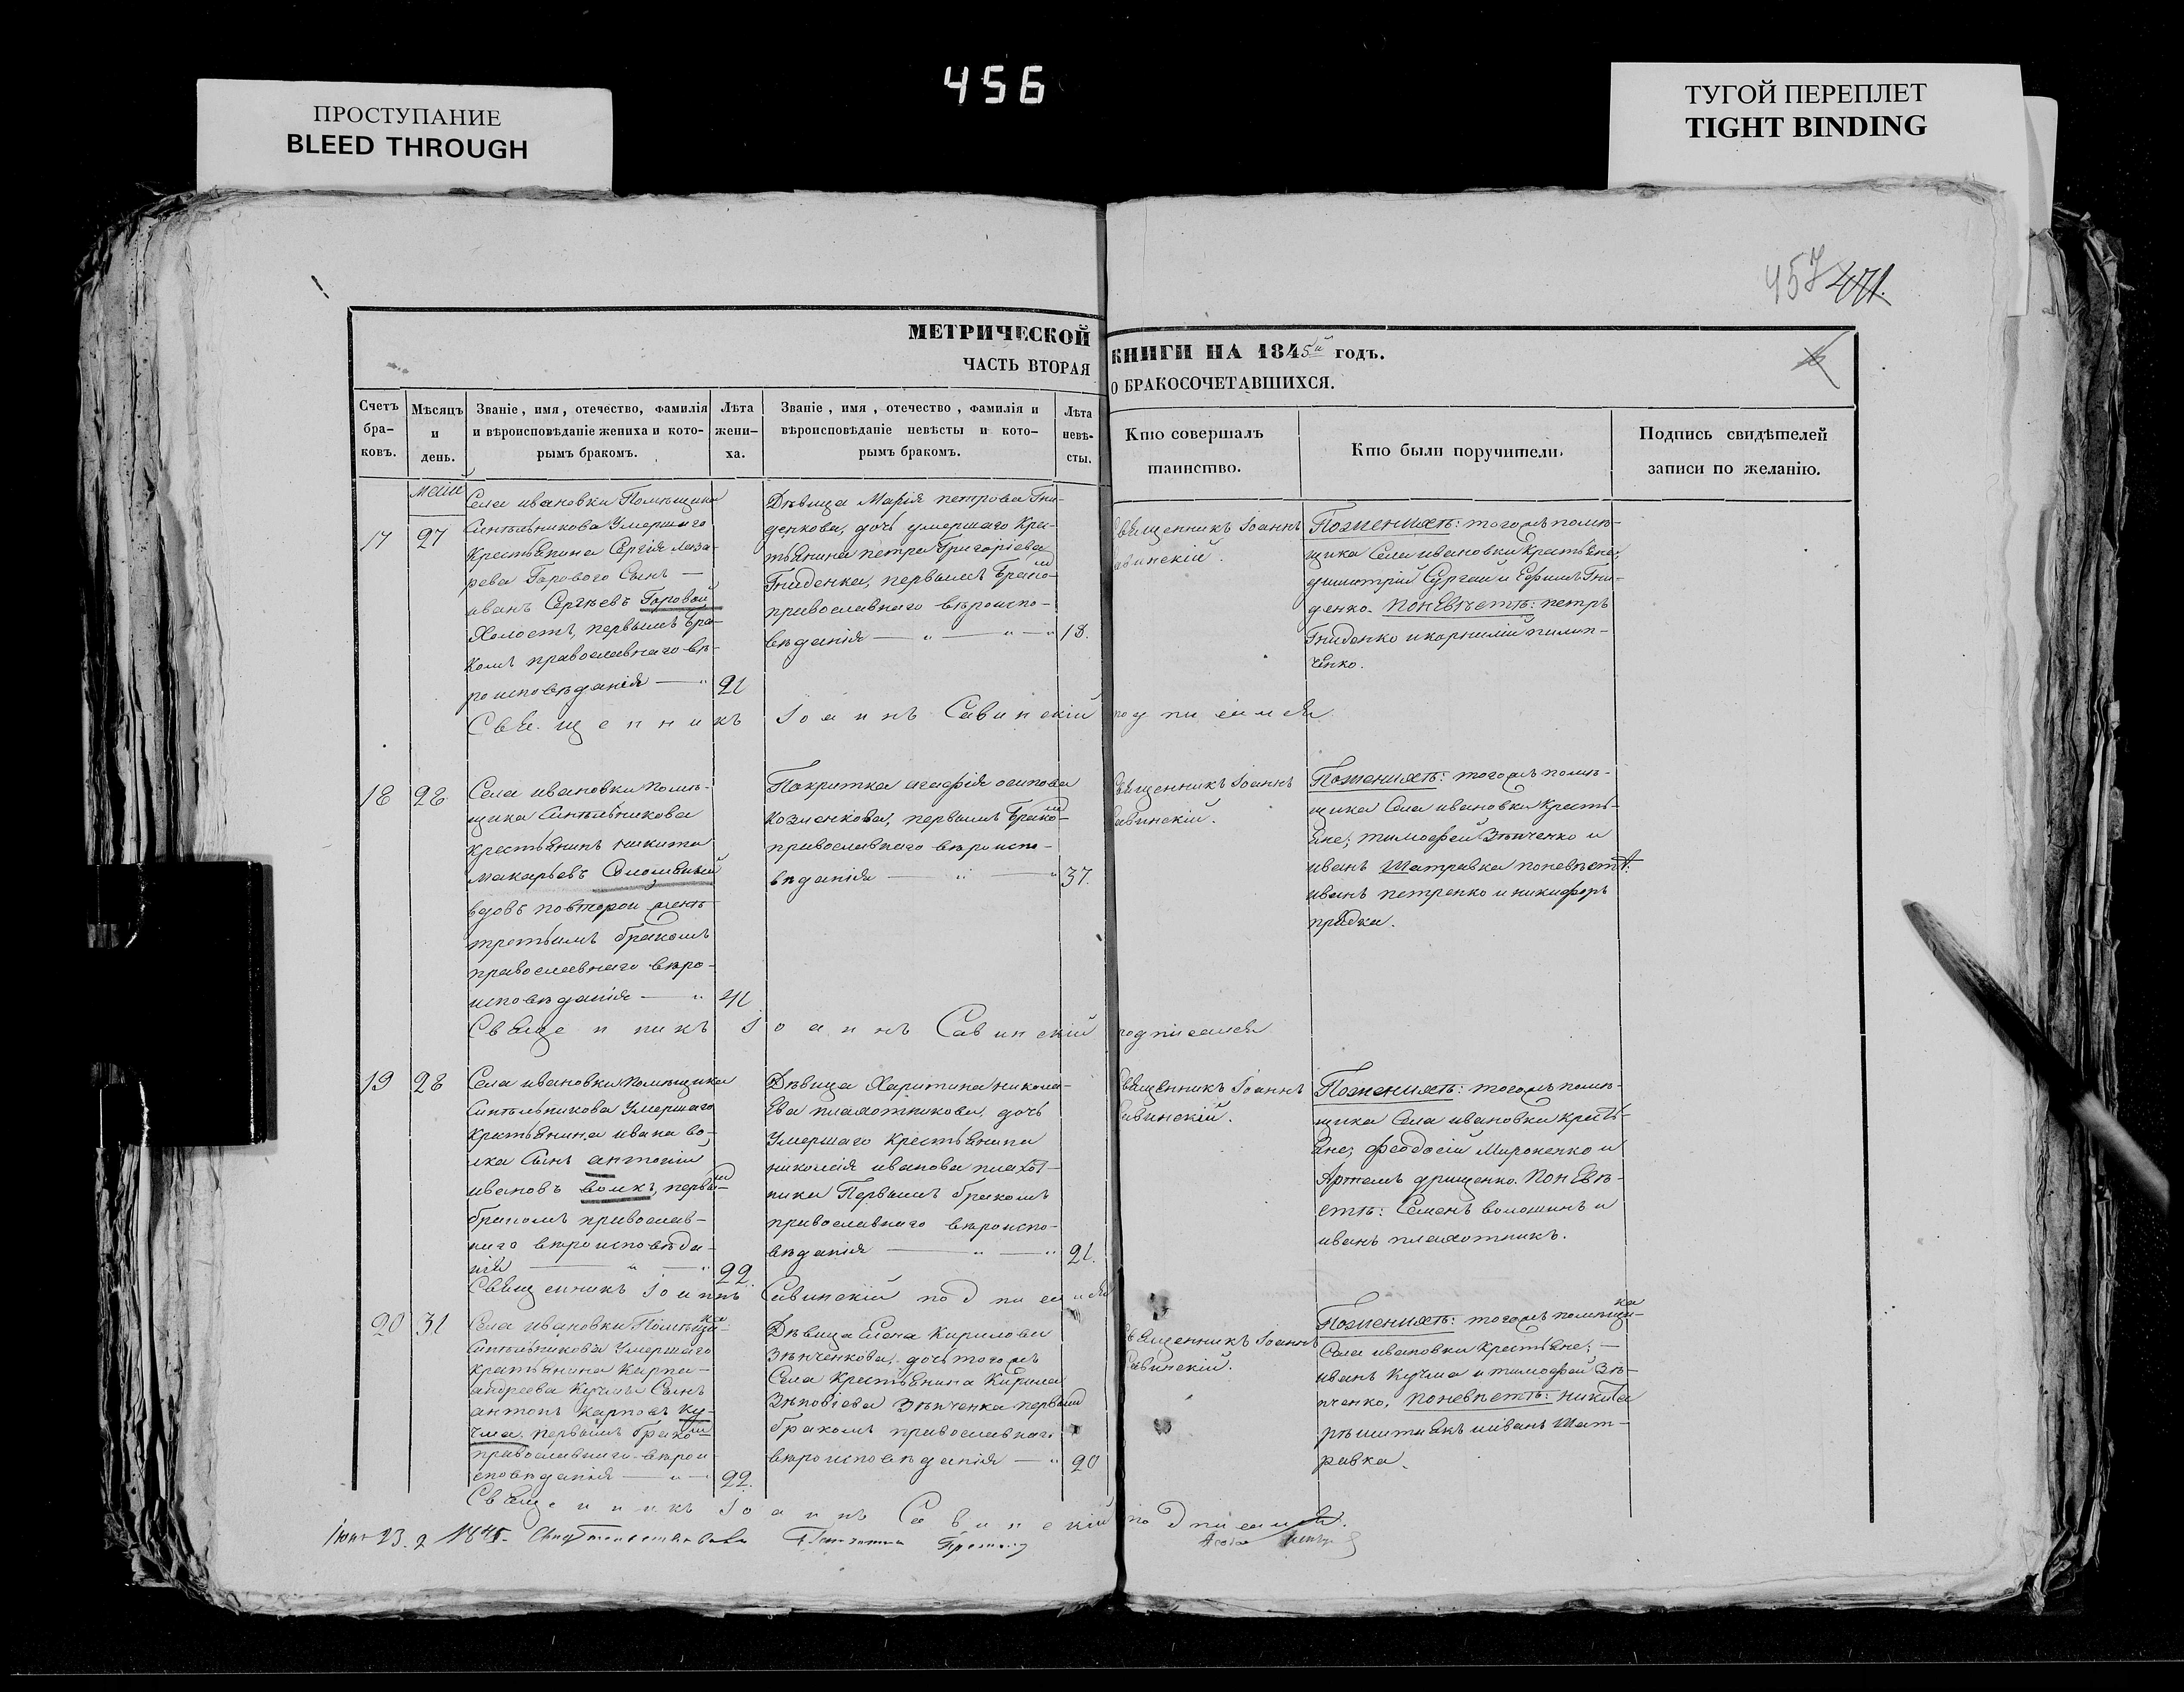 456
ПРОСТУПАНИЕ
BLEED THROUGH
ТУГОЙ ПЕРЕПЛЕТ
TIGHT BINDING
457 471.
МЕТРИЧЕСКОЙ КНИГИ НА 1845й годъ.
ЧАСТЬ ВТОРАЯ О БРАКОСОЧЕТАВШИХСЯ.
Счетъ
бра-
ковъ.
Мѣсяцъ
и
день.
Званіе, имя, отечество, фамилія
и вѣроисповѣданіе жениха и кото-
рымъ бракомъ.
Лѣта
жени-
ха.
Званіе, имя, отечество, фамилія и
вѣроисповѣданіе невѣсты и кото-
рымъ бракомъ.
Лѣта
невѣ-
сты.
Кто совершалъ
таинство.
Кто были поручители.
Подпись свидѣтелей
записи по желанію.
Маій
17
27
Села ивановки Помѣщика
Синельникова Умершаго
Крестьянина Сергія Лаза-
рева Горового Сынъ —
иванъ Сергѣевъ Горовой
Холостъ, первымъ бра-
комъ православнаго вѣ-
роисповѣданія — "
21
Дѣвица Марія петрова Гни-
денкова, дочь умершаго Кре-
стьянина петра Григоріева
Гниденка, первымъ Бракомъ
православнаго вѣроиспо-
вѣданія — " — " — "
18.
Священникъ Іоаннъ
Савинскій.
Поженихѣ: тогожъ помѣ-
щика Села ивановки Крестьяне;
димитрій Сургай и Ефимъ Гни-
денко. поневѣстѣ: петръ
Гниденко и корнилій пилип-
ченко.
Священникъ Іоаннъ Савинскій подписался
18
28
Села ивановки помѣ-
щика Синельникова
крестьянинъ никита
макарьевъ
вдовъ повторой женѣ
третьимъ бракомъ
православнаго вѣро-
исповѣданія — "
41
Покритка агафія осипова
Козленкова, первымъ Бракомъ
православнаго вѣроиспо-
вѣданія — " — "
37.
Священникъ Іоаннъ
Савинскій.
Поженихѣ: тогожъ помѣ-
щика Села ивановки Кресть-
яне; тимофей Зѣнченко и
иванъ Шатравка поневѣстѣ:
иванъ петренко и никифоръ
прядка.
Священникъ Іоаннъ Савинскій подписался
19
28
Села ивановки помѣщика
Синельникова Умершаго
Крестьянина ивана во-
лка Сынъ антоній
ивановъ волкъ, первымъ
бракомъ православ-
наго вѣроисповѣда-
нія — " — "
22.
Дѣвица Харитина никола-
ева плахотникова, дочь
Умершаго крестьянина
николая иванова плахот-
ника Первымъ бракомъ
православнаго вѣроиспо-
вѣданія — " — "
21.
Священникъ Іоаннъ
Савинскій.
Поженихѣ: тогожъ помѣ-
щика Села ивановки Кресть-
яне; феодосій Мироненко и
Артемъ грищенко. Поневѣ-
стѣ: Семенъ волошинъ и
иванъ плахотникъ.
Священникъ Іоаннъ Савинскій подписался
20
31
Села ивановки Помѣщика
Синельникова Умершаго
крестьянина Карпа
андреева Кучмы Сынъ
антонъ Карповъ Ку-
чма, первымъ бракомъ
православнаго вѣрои-
сповѣданія — " — "
22.
Дѣвица Елена Кирилова
Зѣнченкова, дочь тогожъ
Села Крестьянина Кирила
Зѣновіева Зѣнченка первымъ
бракомъ православнаго
вѣроисповѣданія — "
20
Священникъ Іоаннъ
Савинскій.
Поженихѣ: тогожъ помѣщика
Села ивановки Крестьяне; —
иванъ Кучма и тимофей Зѣ-
нченко, поневѣстѣ: никита
рѣшитнякъ ииванъ Шат-
равка.
Священникъ Іоаннъ Савинскій подписался.
Іюня 23. 1845.